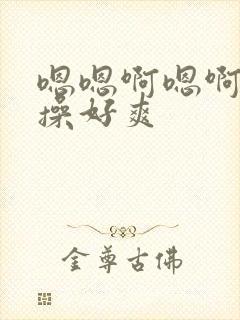 嗯嗯啊嗯啊
操好爽
金尊古佛